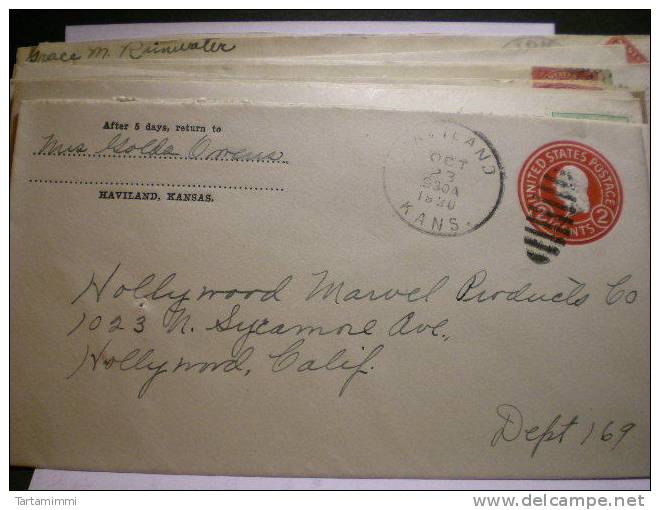 Grace M. Rainwater
After 5 days, return to
Mrs Golda Owens
HAVILAND, KANSAS.
HAVILAND
OCT
23
830A
1930
KANS.
UNITED STATES POSTAGE
2 CENTS 2
Hollywood Marvel Products Co
1023 N. Sycamore Ave,
Hollywood, Calif.
Dept 169
Tartamimmi
delcampe.net